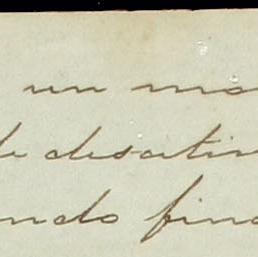 un mo
de desatin
ndo fino